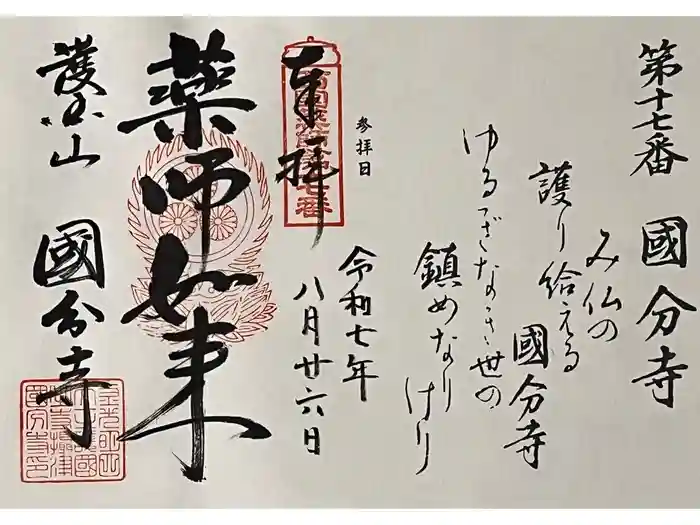 第十七番 國分寺
み仏の
護り給える
國分寺
ゆるぎなき世の
鎮めなり
けり
参拝日
令和七年
八月廿六日
奉拝
薬師如来
護国山 國分寺